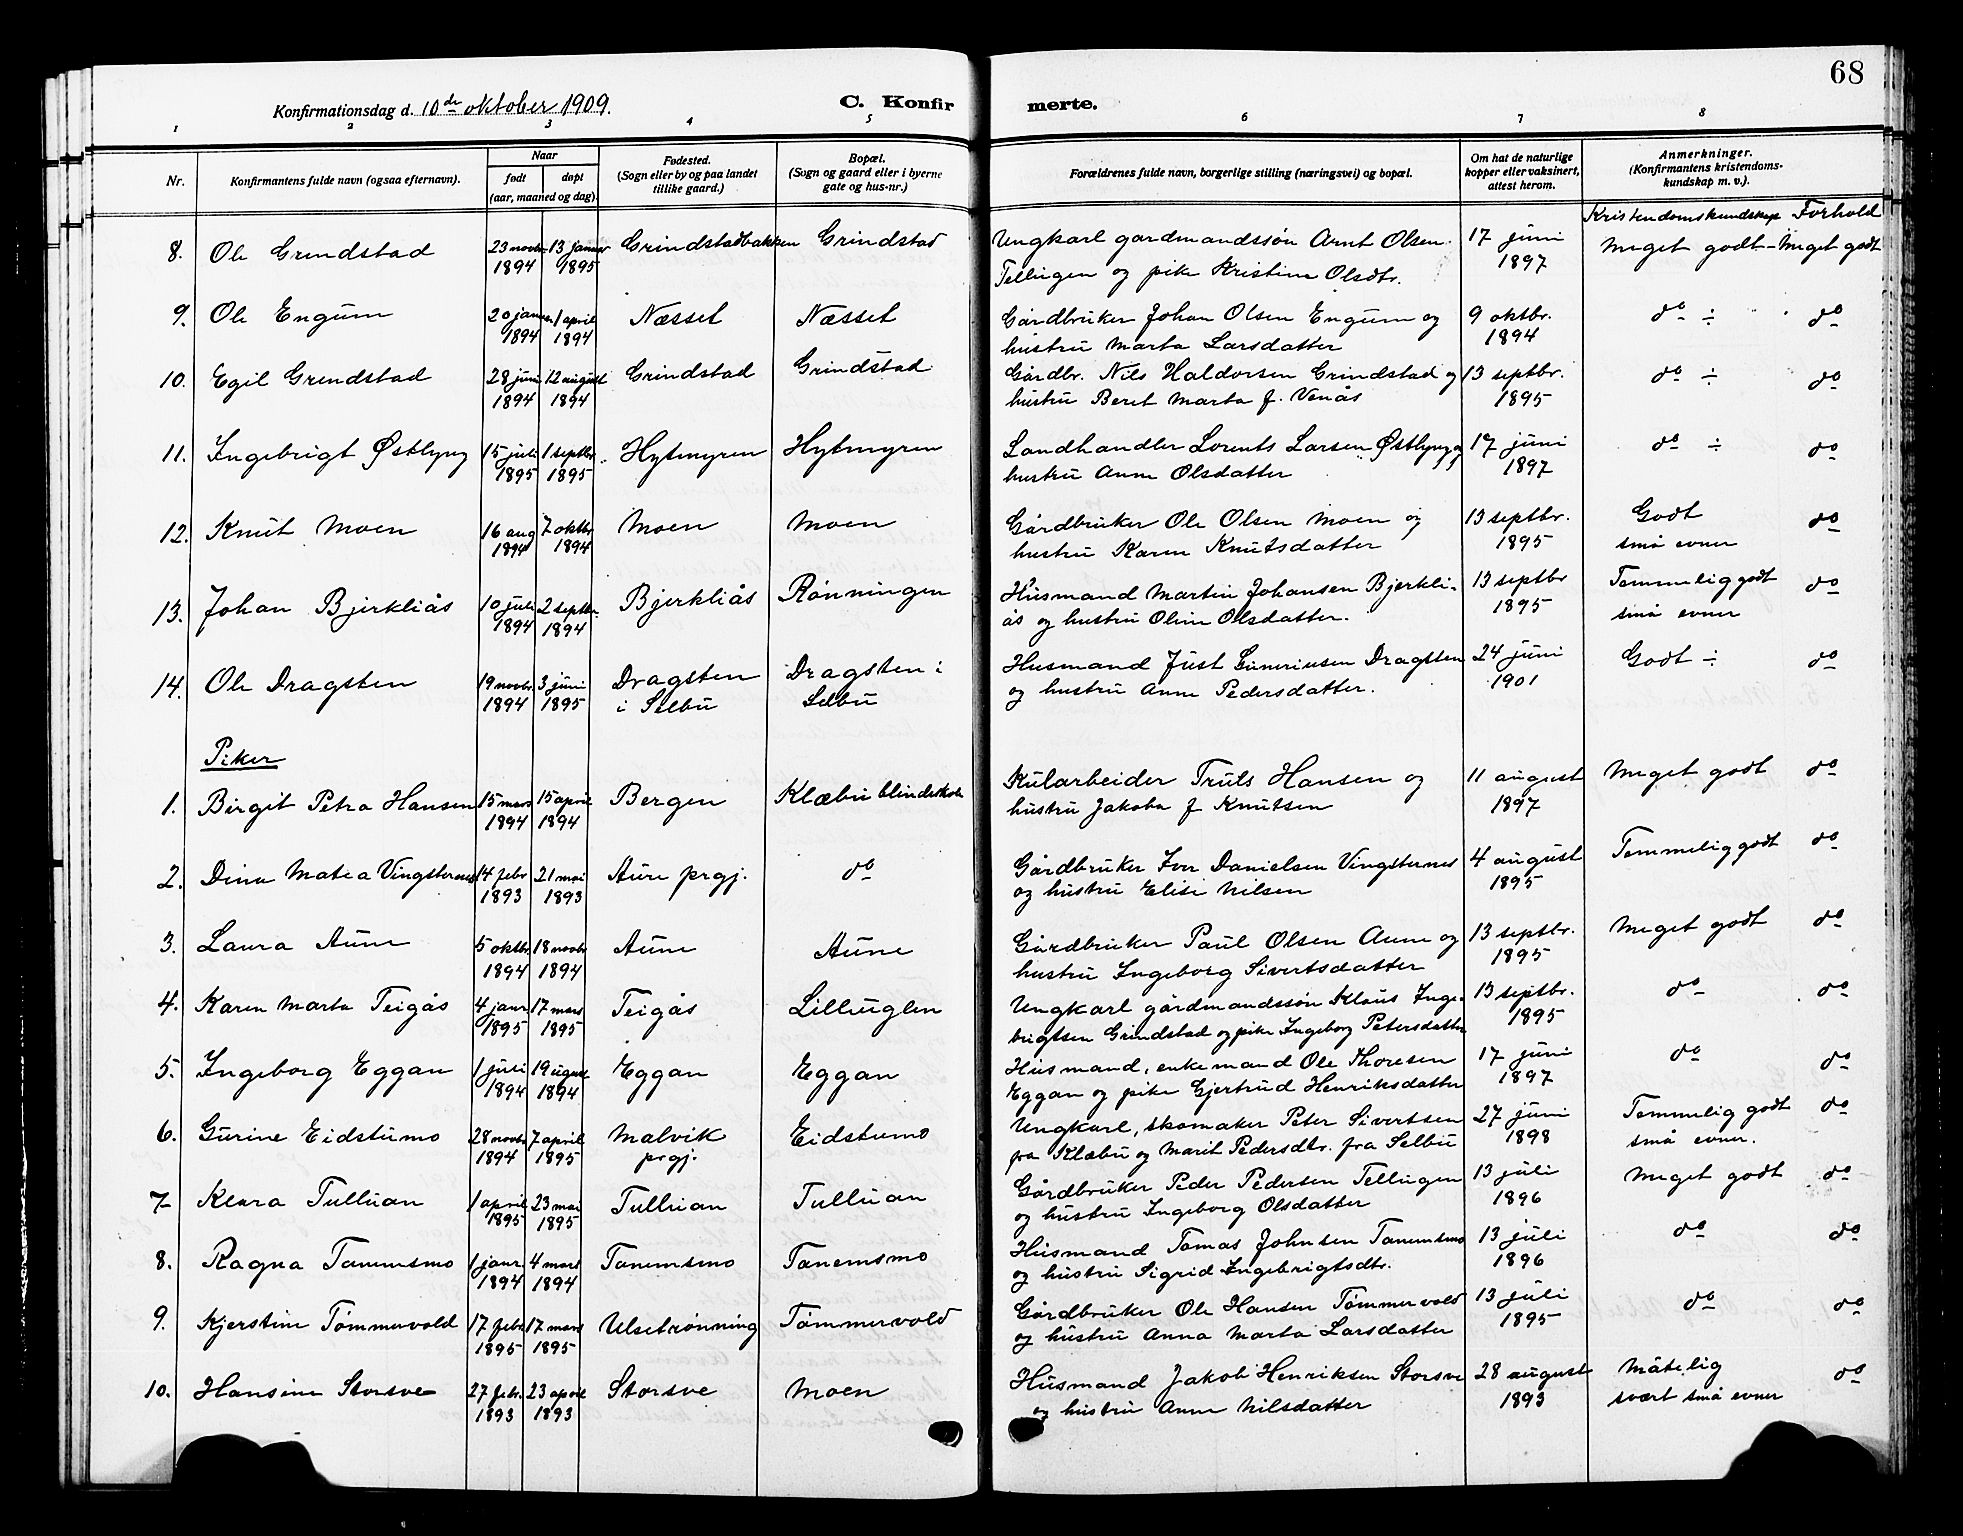 68
Konfirmationsdag d. 10de oktober 1909.
C. Konfir merte.
1 2 3 4 5 6 7 8
Nr. Konfirmantens fulde navn (ogsaa efternavn).
Naar
født døpt
(aar, maaned og dag).
Fødested.
(Sogn eller by og paa landet
tillike gaard.)
Bopæl.
(Sogn og gaard eller i byerne
gate og hus-nr.)
Forældrenes fulde navn, borgerlige stilling (næringsvei) og bopæl.
Om hat de naturlige
kopper eller vaksinert,
attest herom.
Anmerkninger.
(Konfirmantens kristendoms-
kundskap m. v.).
Kristendomskundskap Forhold
8. Ole Grendstad 23 novbr 13 januar Grindstadbakken Grindstad Ungkarl gardmandssøn Arnt Olsen 17 juni Meget godt - Meget godt
1894 1895 Tellugen og pike Kristine Olsdtr. 1897
9. Ole Engum 20 januar 1 april Næsset Næsset Gårdbruker Johan Olsen Engum og 9 oktbr. do ÷ do
1894 1894 hustru Marta Larsdatter 1894
10. Egil Grendstad 28 juni 12 august Grindstad Grindstad Gårdbr. Nils Haldorsen Grindstad og 13 septbr. do ÷ do
1894 1894 hustru Beret Marta f. Venås 1895
11. Ingebrigt Østlyng 15 juli 1 septbr. Hytmyren Hytmyren Landhandler Lorents Larsen Østlyng og 17 juni do ÷ do
1895 1895 hustru Anne Olsdatter 1897
12. Knut Moen 16 aug 7 oktbr Moen Moen Gårdbruker Ole Olsen Moen og 13 septbr. Godt do
1894 1894 hustru Karen Knutsdatter 1895 små evner
13. Johan Bjerkliås 10 juli 2 septbr. Bjerkliås Rønningen Husmand Martin Johansen Bjerkli- 13 septbr Temmelig godt do
1894 1894 ås og hustru Oline Olsdatter. 1895 små evner
14. Ole Dragsten 19 novbr. 3 juni Dragsten Dragsten i Husmand Just Dragsten 24 juni Godt ÷ do
1894 1895 i Selbu Selbu og hustru Anne Pedersdatter. 1901
Piker
1. Birgit Petra Hansen 15 mars 15 april Bergen Klæbu blindeskole Kularbeider Truls Hansen og 11 august Meget godt do
1894 1894 hustru Jakoba f Knutsen 1897
2. Dina Matea Vingsternes 14 febr 21 mai Aure prgj. do Gårdbruker Iver Danielsen Vingsternes 4 august Temmelig godt do
1893 1893 og hustru Elise Nilsen 1895
3. Laura Aune 5 oktbr. 18 novbr Aune Aune Gårdbruker Paul Olsen Aune og 13 septbr. Meget godt do
1894 1894 hustru Ingeborg Sivertsdatter 1895
4. Karen Marta Teigås 4 januar 17 mars Teigås Lilleuglen Ungkarl gårdmandssøn Klaus Inge- 13 septbr. do do
1895 1895 brigtsen Grindstad og pike Ingeborg Petersdatter 1895
5. Ingeborg Eggan 1 juli 19 august Eggan Eggan Husmand, enkemand Ole Thoresen 17 juni do do
1894 1894 Eggan og pike Gjertrud Henriksdatter 1897
6. Gurine Eidstumo 28 novbr 7 april Malvik Eidstumo Ungkarl, skomaker Peter Sivertsen 27 juni Temmelig godt do
1894 1895 prgj. fra Klæbu og Marit Pedersdtr. fra Selbu 1898 små evner.
7 Klara Tulluan 1 april 23 mai Tulluan Tulluan Gårdbruker Peder Pedersen Tellugen 13 juli Meget godt do
1895 1895 og hustru Ingeborg Olsdatter 1896
8. Ragna Tanemsmo 1 januar 4 mars Tanemsmo Tanemsmo Husmand Tomas Johnsen Tanemsmo 13 juli do do
1894 1894 og hustru Sigrid Ingebrigtsdtr. 1896
9. Kjerstine Tømmervold 17 febr. 17 mars Ulsetrønning Tømmervold Gårdbruker Ole Hansen Tømmervold 13 juli do do
1895 1895 og hustru Anna Marta Larsdatter 1895
10. Hansine Storsve 27 febr. 23 april Storsve Moen Husmand Jakob Henriksen Storsve 28 august Måtelig do
1893 1893 og hustru Anne Nilsdatter 1893 svært små evner